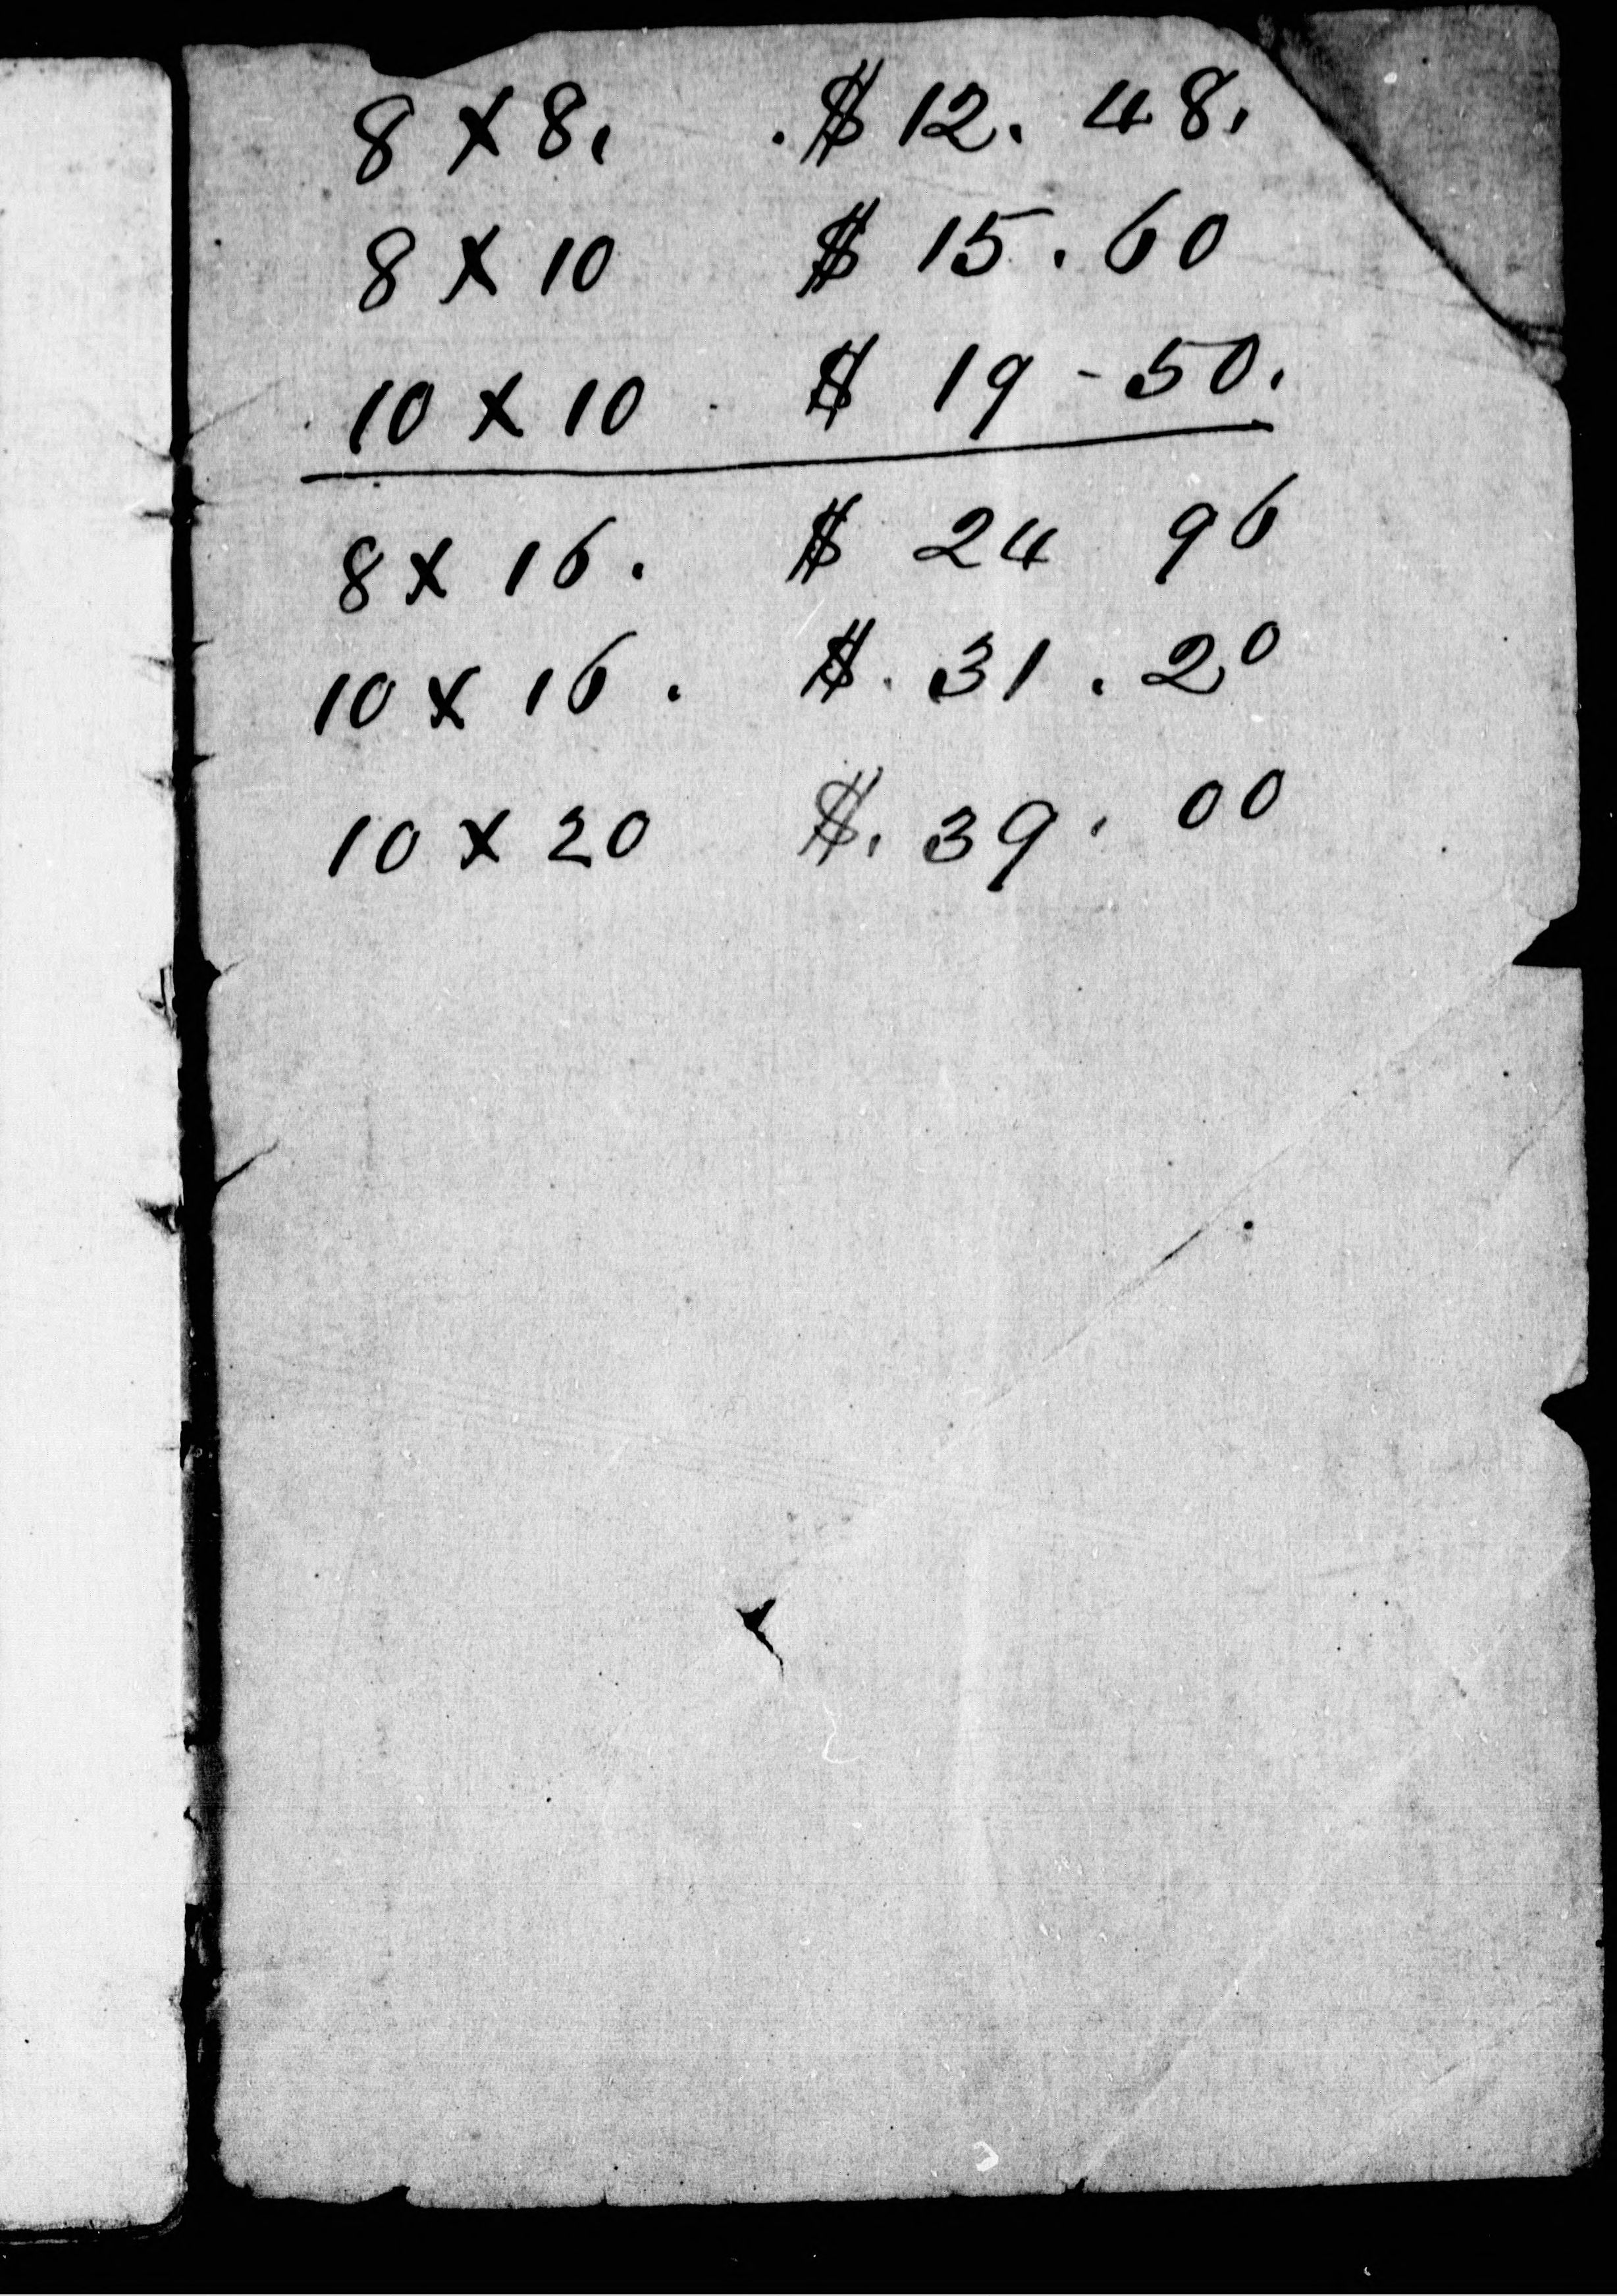 8 X 8. $ 12. 48.
8 X 10 $ 15. 60
10 X 10 $ 19 - 50.
8 X 16. $ 24 96
10 X 16. $. 31. 20
10 X 20 $. 39. 00